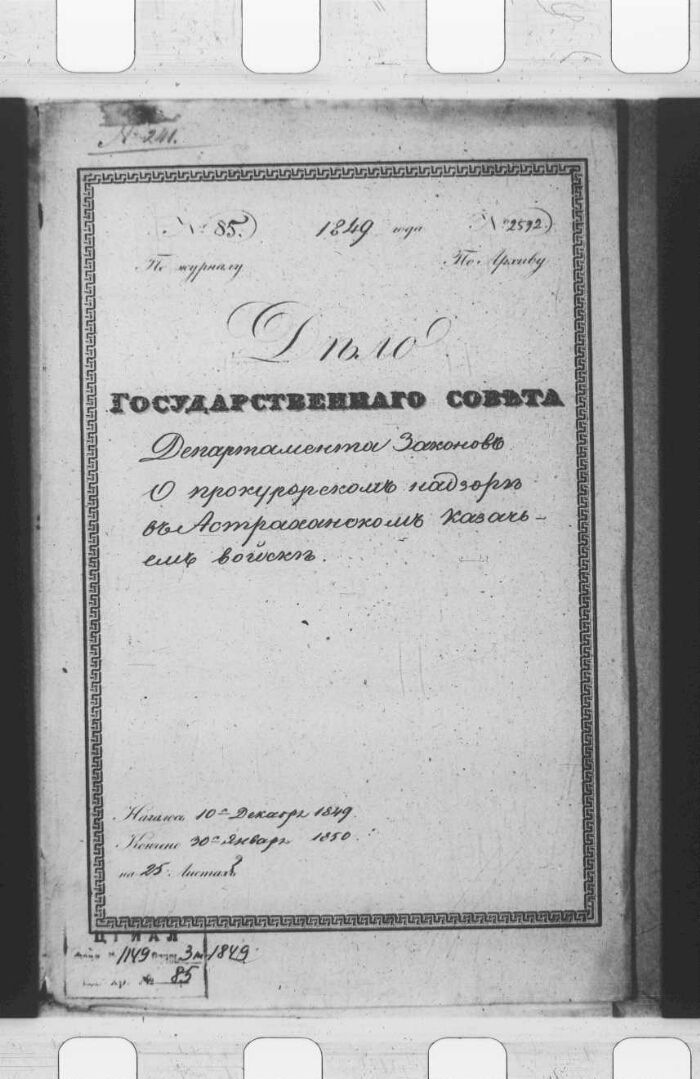 № 241.
№ 85. 1849 года № 2592.
По журналу По Архиву
Дѣло
ГОСУДАРСТВЕННАГО СОВѢТА
Департамента Законовъ
О прокурорскомъ надзорѣ
въ Астраханскомъ казачь-
емъ войскѣ.
Началось 10го Декабря 1849.
Кончено 30го Января 1850.
на 25. Листахъ
ЦГИАЛ
1149 3 1849
№ 85